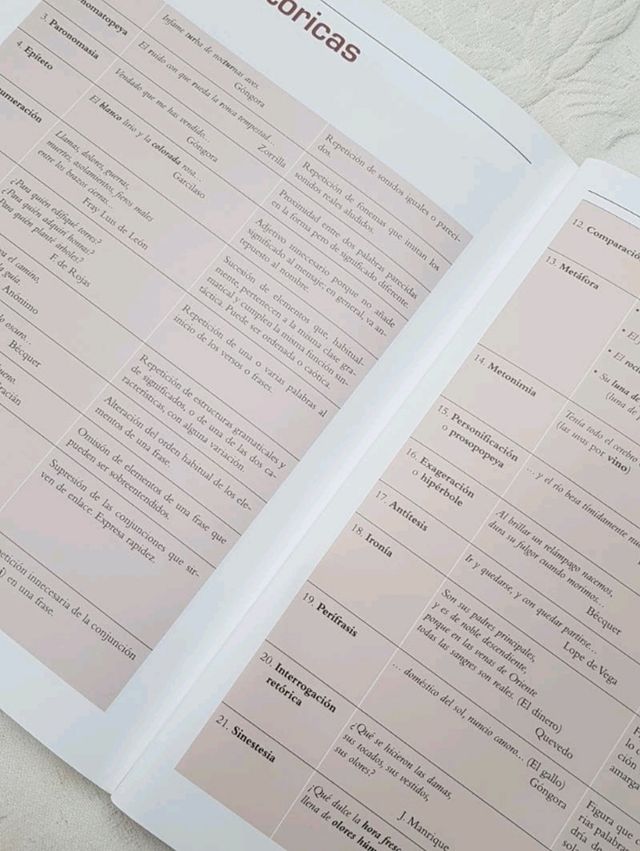 tóricas
nomatopeya
Infame turba de nocturnas aves.
Góngora
Repetición de sonidos iguales o pareci-
dos.
3. Paronomasia
El ruido con que rueda la ronca tempestad...
Zorrilla
Repetición de fonemas que imitan los
sonidos reales aludidos.
4. Epíteto
Vendado que me has vendido...
Góngora
Proximidad entre dos palabras parecidas
en la forma pero de significado diferente.
umeración
El blanco lirio y la colorada rosa...
Garcilaso
Adjetivo innecesario porque no añade
significado al mensaje; en general, va an-
tepuesto al nombre.
Llamas, dolores, guerras,
muertes, asolamientos, fieros males
entre los brazos cierras...
Fray Luis de León
Sucesión de elementos que, habitual-
mente, pertenecen a la misma clase gra-
matical y cumplen la misma función sin-
táctica. Puede ser ordenada o caótica.
¿Para quién edifiqué torres?
¿Para quién adquirí honras?
Para quién planté árboles?
F. de Rojas
Repetición de una o varias palabras al
inicio de los versos o frases.
el camino,
guía.
Anónimo
Repetición de estructuras gramaticales y
de significados, o de una de las dos ca-
racterísticas, con alguna variación.
oscuro...
Bécquer
Alteración del orden habitual de los ele-
mentos de una frase.
Omisión de elementos de una frase que
pueden ser sobreentendidos.
Supresión de las conjunciones que sir-
ven de enlace. Expresa rapidez.
petición innecesaria de la conjunción
en una frase.
12. Comparació
13. Metáfora
• El
• El roc
• Su luna de
(luna de
14. Metonimia
Tenía todo el cerebro
(las uvas por vino)
15. Personificación
o prosopopeya
... y el río besa tímidamente
16. Exageración
o hipérbole
Al brillar un relámpago nacemos,
dura su fulgor cuando morimos...
Bécquer
17. Antítesis
Ir y quedarse, y con quedar partirse...
Lope de Vega
18. Ironía
Son sus padres principales,
y es de noble descendiente,
porque en las venas de Oriente
todas las sangres son reales. (El dinero)
Quevedo
19. Perífrasis
... doméstico del sol, nuncio canoro... (El gallo)
Góngora
lo
ción
amarga
20. Interrogación
retórica
¿Qué se hicieron las damas,
sus tocados, sus vestidos,
sus olores?
J. Manrique
Figura que
rias palabras
dría de
sol
21. Sinestesia
¡Qué dulce la hora fresc
llena de olores húm